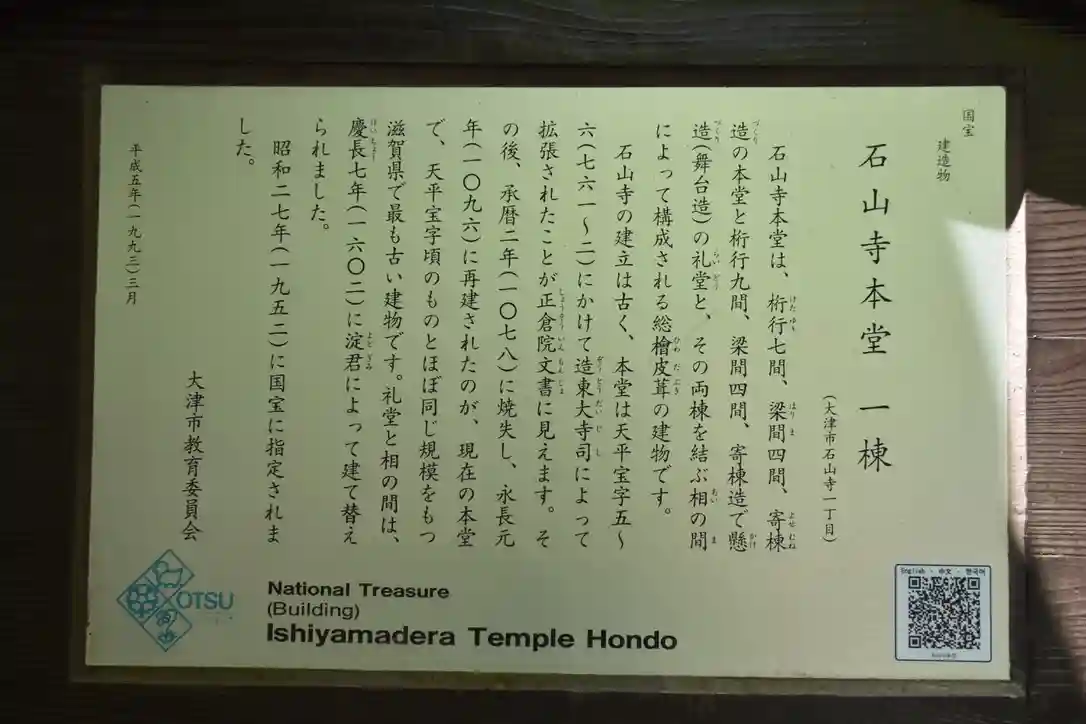 国宝
建造物
石山寺本堂 一棟
(大津市石山寺一丁目)
石山寺本堂は、桁行七間、梁間四間、寄棟
造の本堂と桁行九間、梁間四間、寄棟造で懸
造(舞台造)の礼堂と、その両棟を結ぶ相の間
によって構成される総檜皮葺の建物です。
石山寺の建立は古く、本堂は天平宝字五〜
六(七六一〜二)にかけて造東大寺司によって
拡張されたことが正倉院文書に見えます。そ
の後、承暦二年(一〇七八)に焼失し、永長元
年(一〇九六)に再建されたのが、現在の本堂
で、天平宝字頃のものとほぼ同じ規模をもつ
滋賀県で最も古い建物です。礼堂と相の間は、
慶長七年(一六〇二)に淀君によって建て替え
られました。
昭和二七年(一九五二)に国宝に指定されま
した。
平成五年(一九九三)三月
大津市教育委員会
OTSU
National Treasure
(Building)
Ishiyamadera Temple Hondo
English · 中文 · 한국어